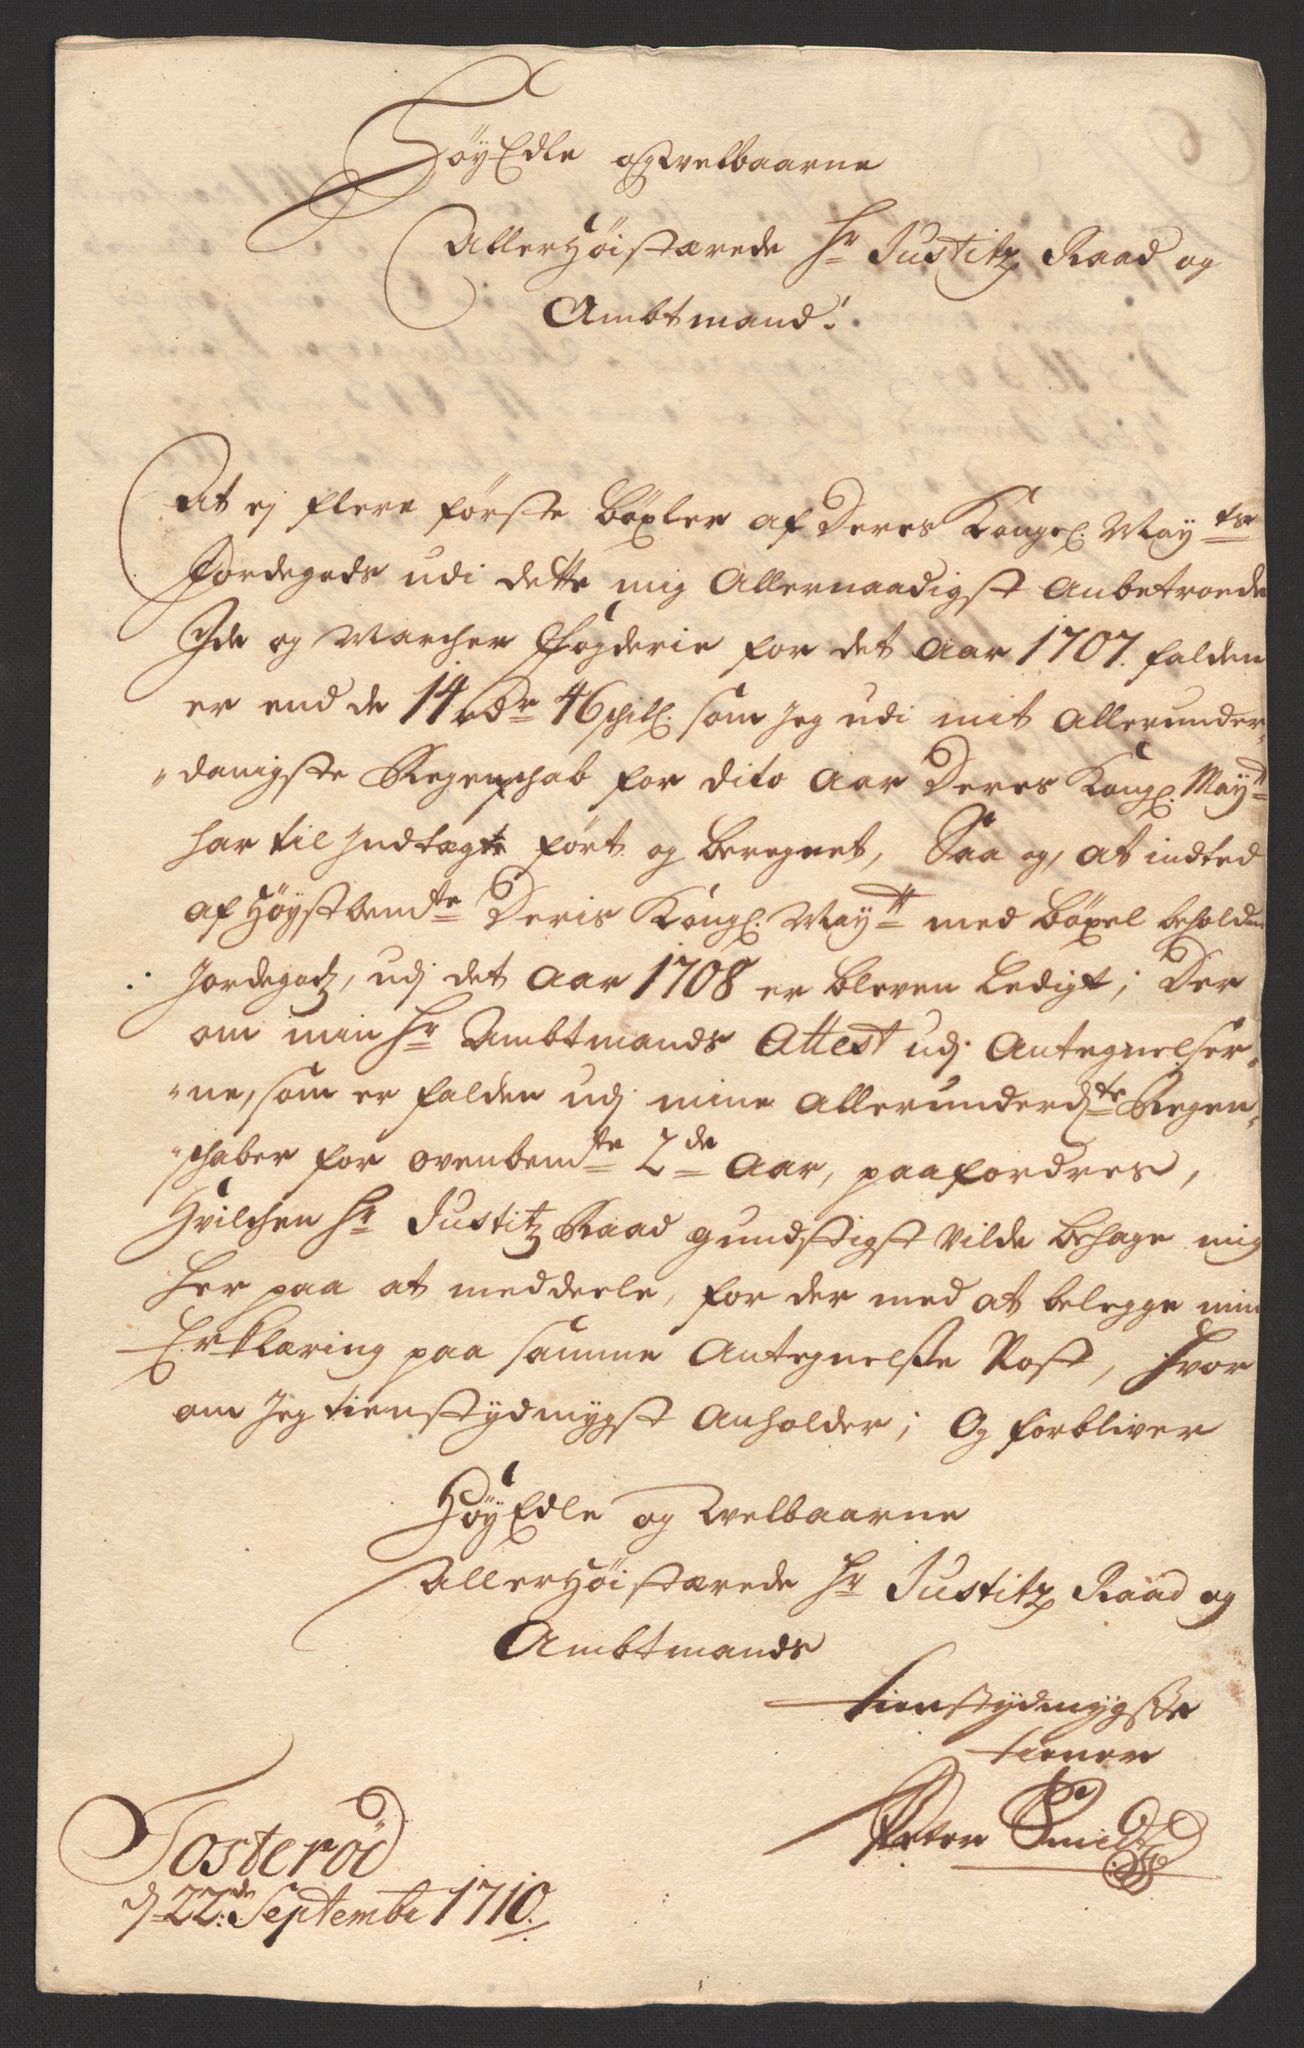 HøyEdle og Welbaarne
Allerhöistærede Hr Justitz Raad og
Ambtmand!
At ej flere förste böxler af Deres Kongel. Mayts
Jordegods udi dette mig Allernaadigst Anbetroede
Ide og Marcher Fogderie for det Aar 1707. falden
er end de 14 rdr 46 schill. som jeg udi mit Allerunder„
„danigste Regenschab for dito Aar Deres Kongl. Mayt
har til Indtægt fört og beregnet, Saa og, at indted
af Høystbemte Deris Kongl. Maytt med böxel beholdne
Jordegodz, udj det Aar 1708 er bleven Ledigt; Der
om min Hr Ambtmands Attest udj Antegnelser„
„ne, som er falden udj mine Allerunderdte Regen„
„schaber for ovenbemte 2de Aar, paafordres,
Hvilchen Hr Justitz Raad gundstigst vilde behage mig
her paa at meddeele, for der med at belegge min
Erklæring paa samme Antegnelse Post, hvor
om jeg tienstydmygst Anholder; Og forbliver
HøyEdle og Welbaarne
Allerhöistærede Hr Justitz Raad og
Ambtmands
tienstydmygste
tiener
Peter Smidt
Tosteröd
d 22de Septembr 1710.